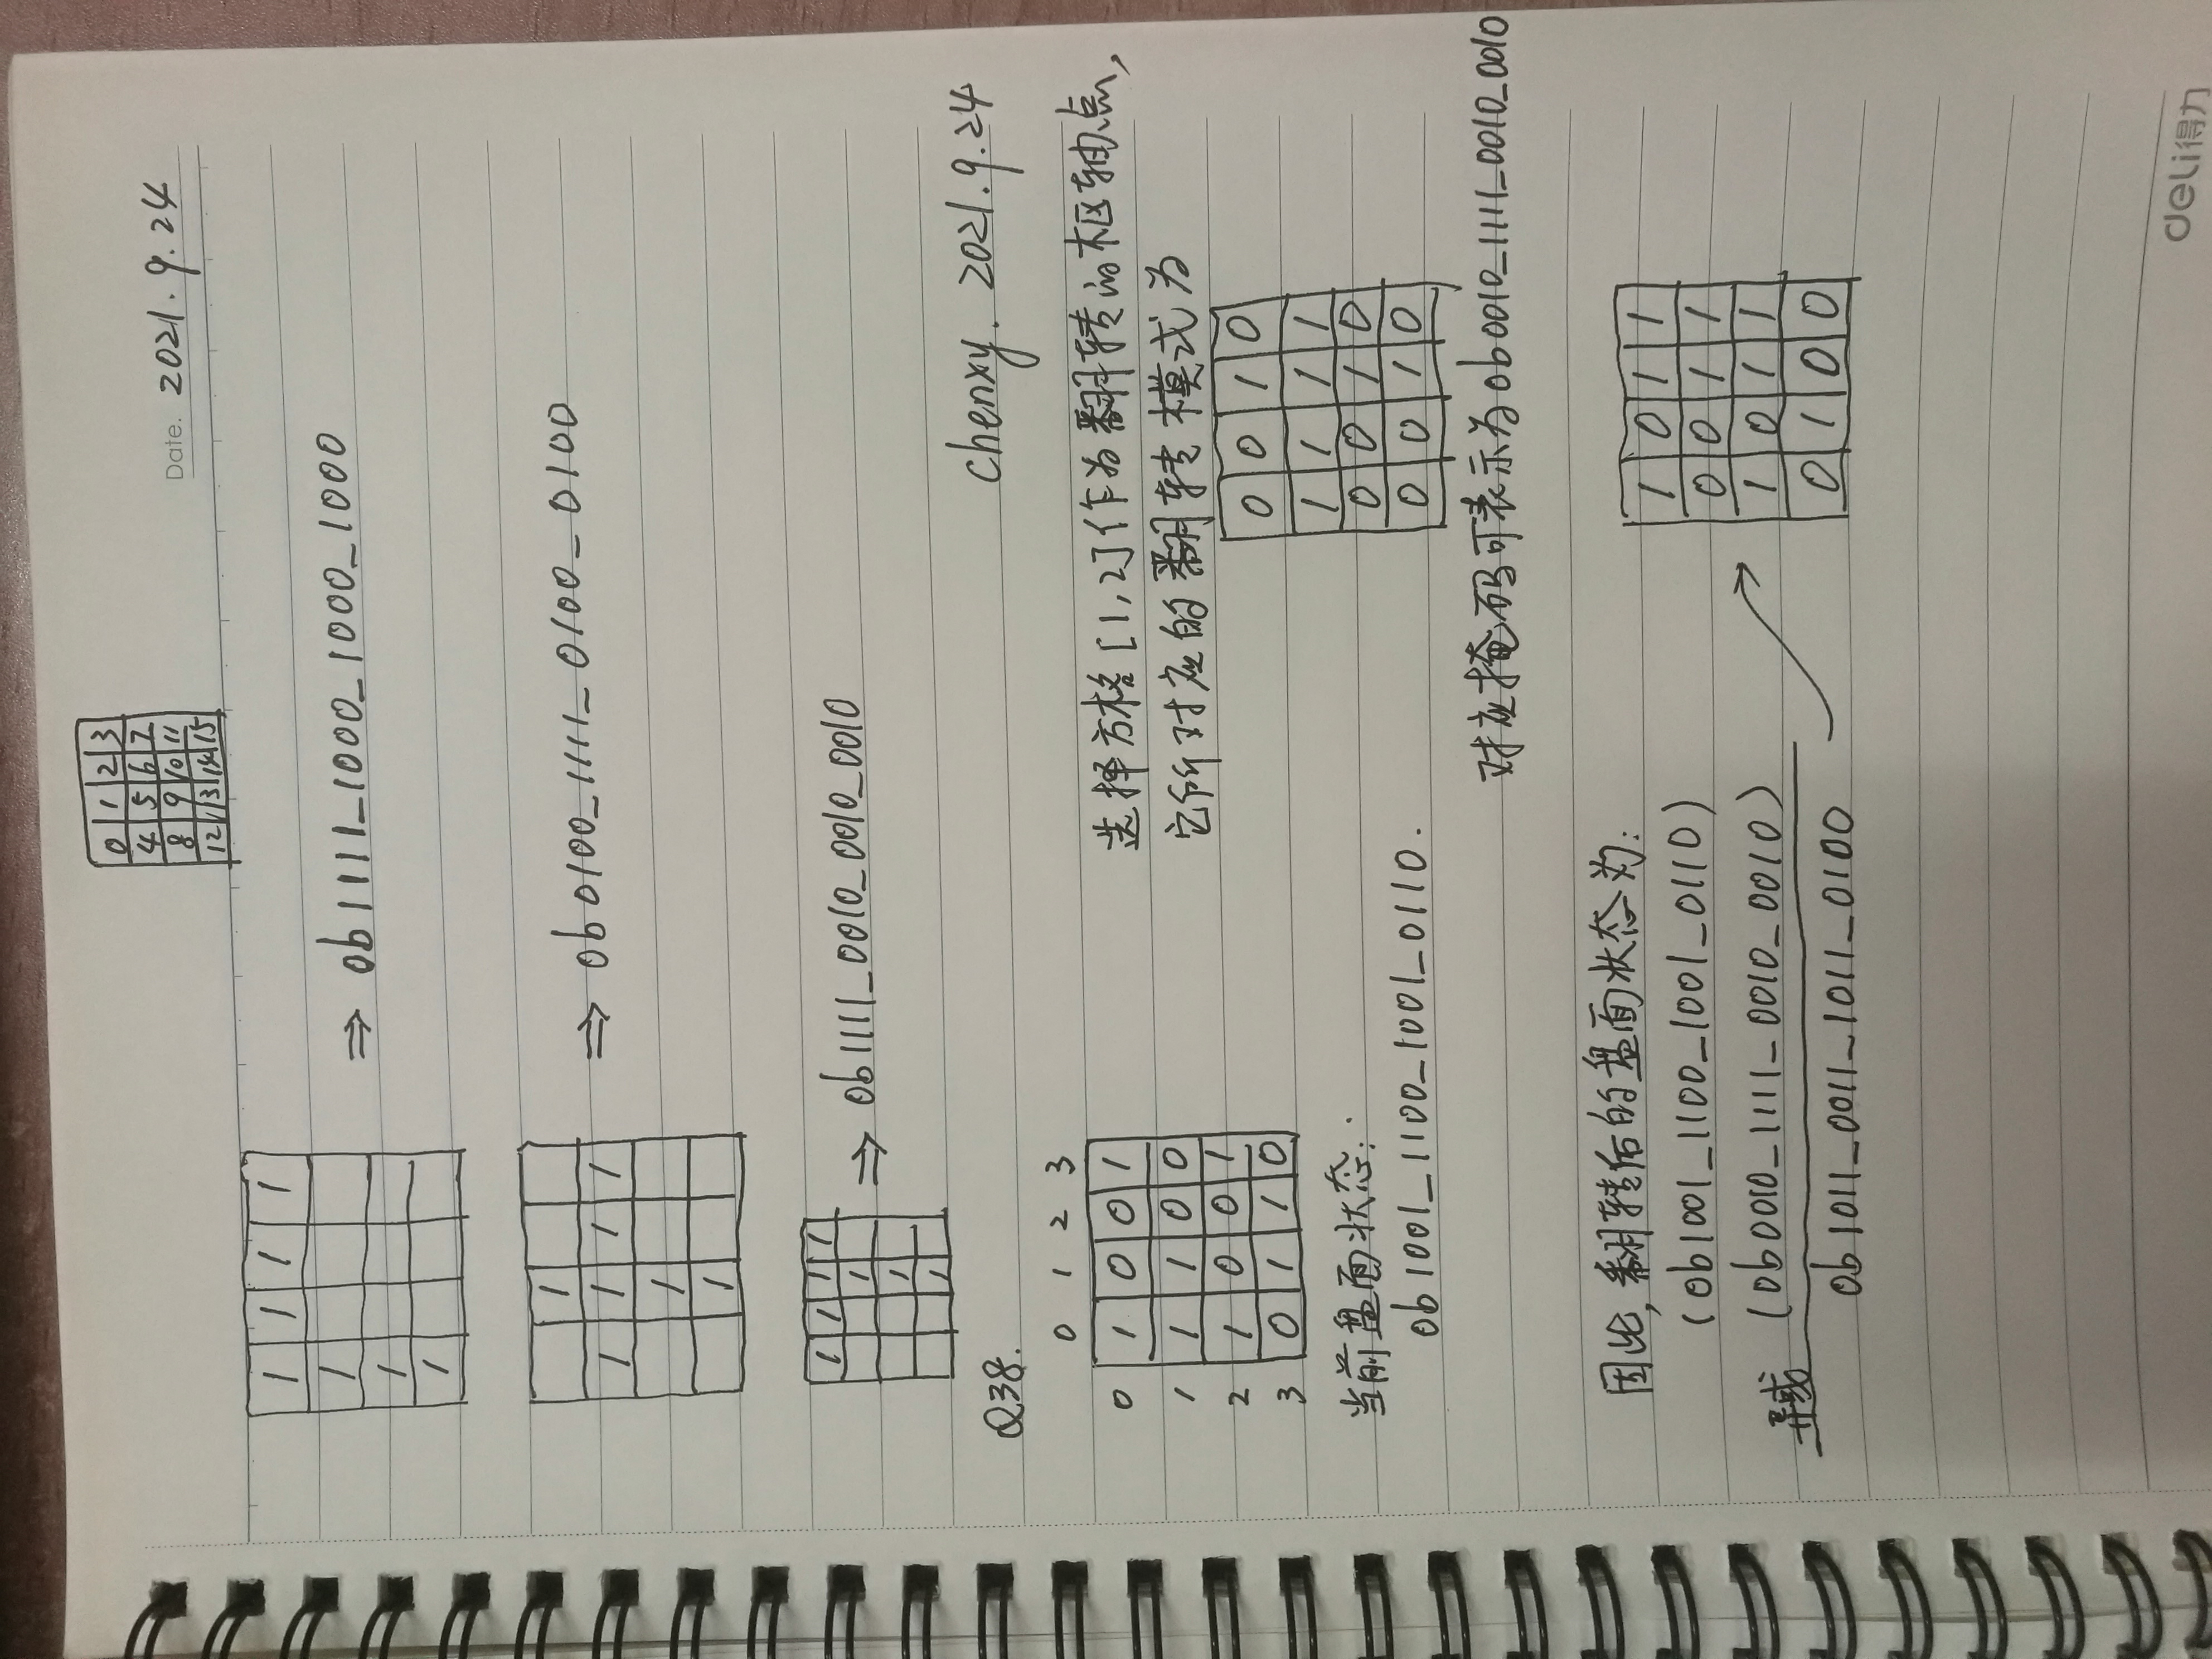 0 1 2 3
4 5 6 7
8 9 10 11
12 13 14 15
Date. 2021.9.24
1 1 1 1
1
1
1
⇒ 0b1111_1000_1000_1000
1
1 1 1 1
1
1
⇒ 0b0100_1111_0100_0100
1 1 1 1
1
1
1
⇒ 0b1111_0010_0010_0010
chenxy. 2021.9.24
Q38.
0 1 2 3
0 1 0 0 1
1 1 1 0 0
2 1 0 0 1
3 0 1 1 0
当前盘面状态:
0b1001_1100_1001_0110.
选择方格[1,2]作为翻转的枢轴点,
它所对应的翻转模式为
0 0 1 0
1 1 1 1
0 0 1 0
0 0 1 0
对应掩码可表示为0b0010_1111_0010_0010
因此,翻转后的盘面状态为:
(0b1001_1100_1001_0110)
异或 (0b0010_1111_0010_0010)
0b1011_0011_1011_0100
1 0 1 1
0 0 1 1
1 0 1 1
0 1 0 0
deli得力